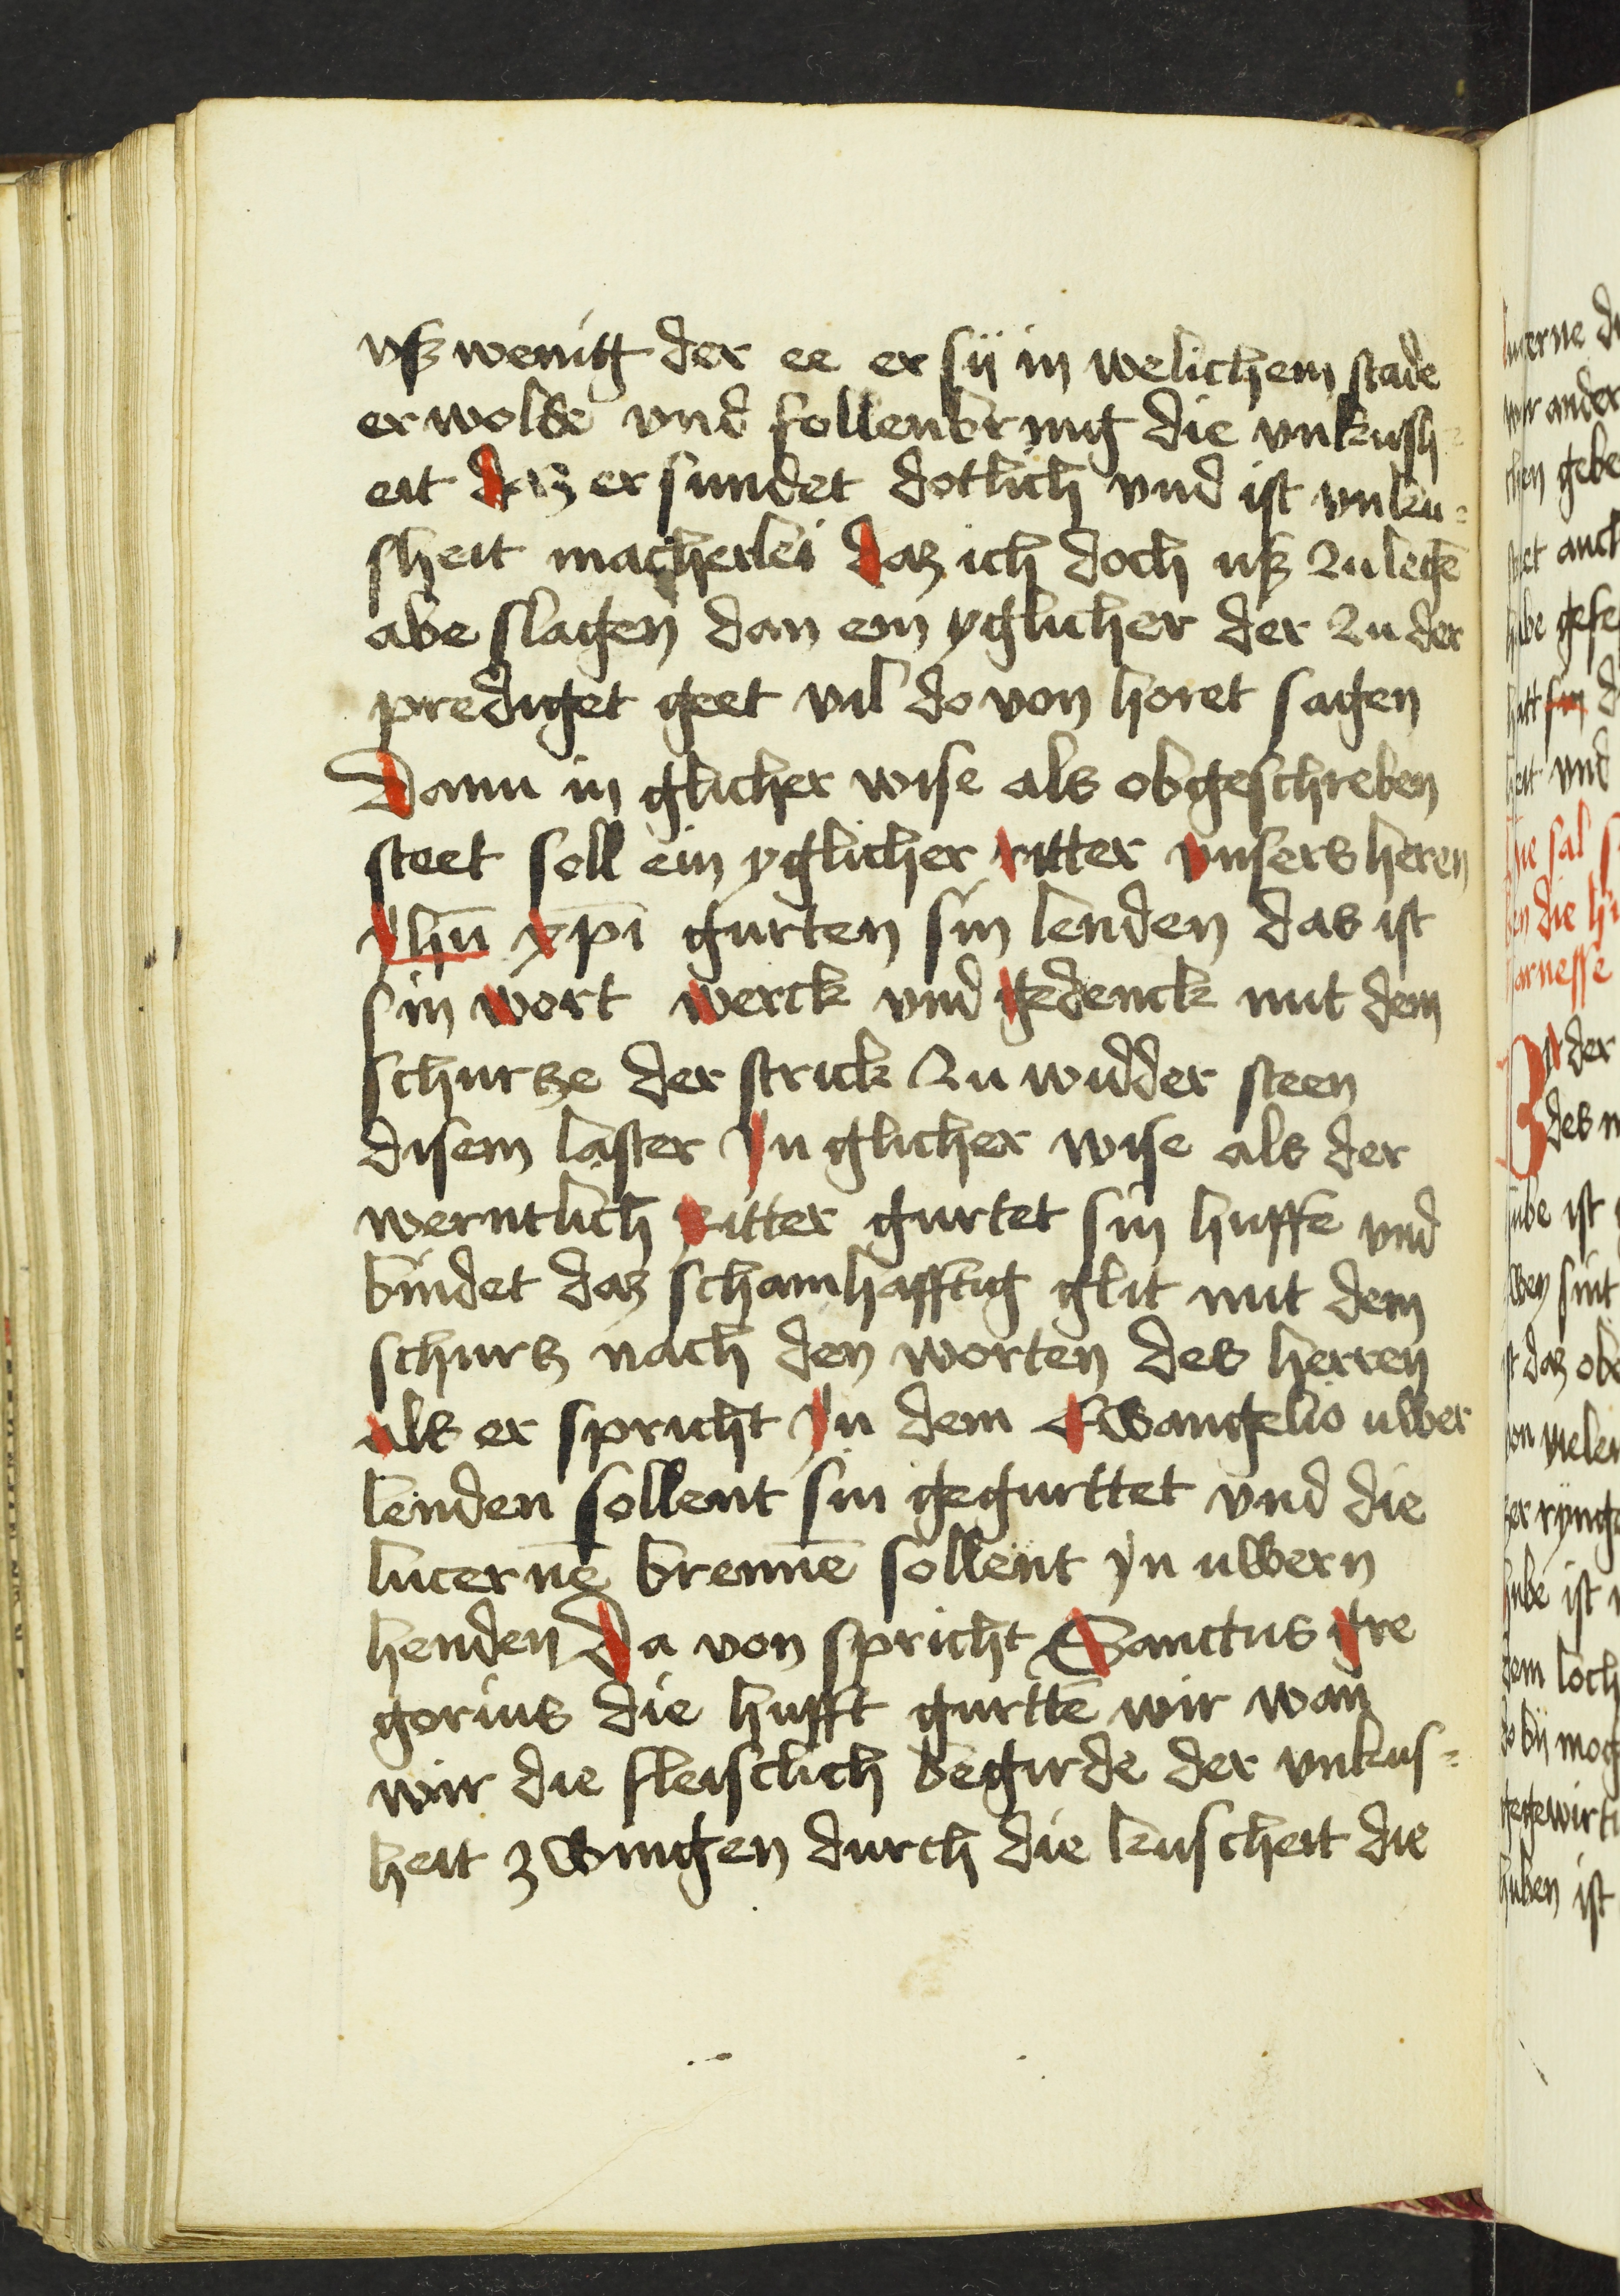 vß wenig der ee er sÿ in welichem stade
er wolde vnd follenbring die vnkush¬
eit daz er sundet dotlich vnd ist vnku¬
sheit macherlei daz ich doch uß zu legē
abe slagen dan ein yglicher der zu der
prediget geet vil do von horet sagen
Dann in glicher wise als obgeschreben
steet soll ein yglicher ritter vnsers heren
yhū xp̄i gurten sin lenden das ist
sin wort werck vnd gedenck mit dem
schurtze der strick zu wudder steen
disem laster Yn glicher wise als der
werntlich Ritter gurtet sin huffe vnd
bindet daz schamhafftig glit mit dem
schurtz nach den worten des herren
als er spricht Yn dem Ewangelio uwer
lenden sollent sin gegurttet vnd die
lucernē brennē sollent yn uwern
henden Da von spricht Sanctus gre
gorius die hufft gurttē wir wan
wir die fleisclich begirde der vnkus¬
heit zwingen durch die kuscheit die
lucerne
wir ander
chen gebe
auch
habe gese
hatt sin d
heit vnd
Die sal
ben die
harnesse
Zu der
des
hube ist
sint
daz obe
von vielen
rynge
hube ist
dem loch
do bÿ mog
gegewirti
huben ist